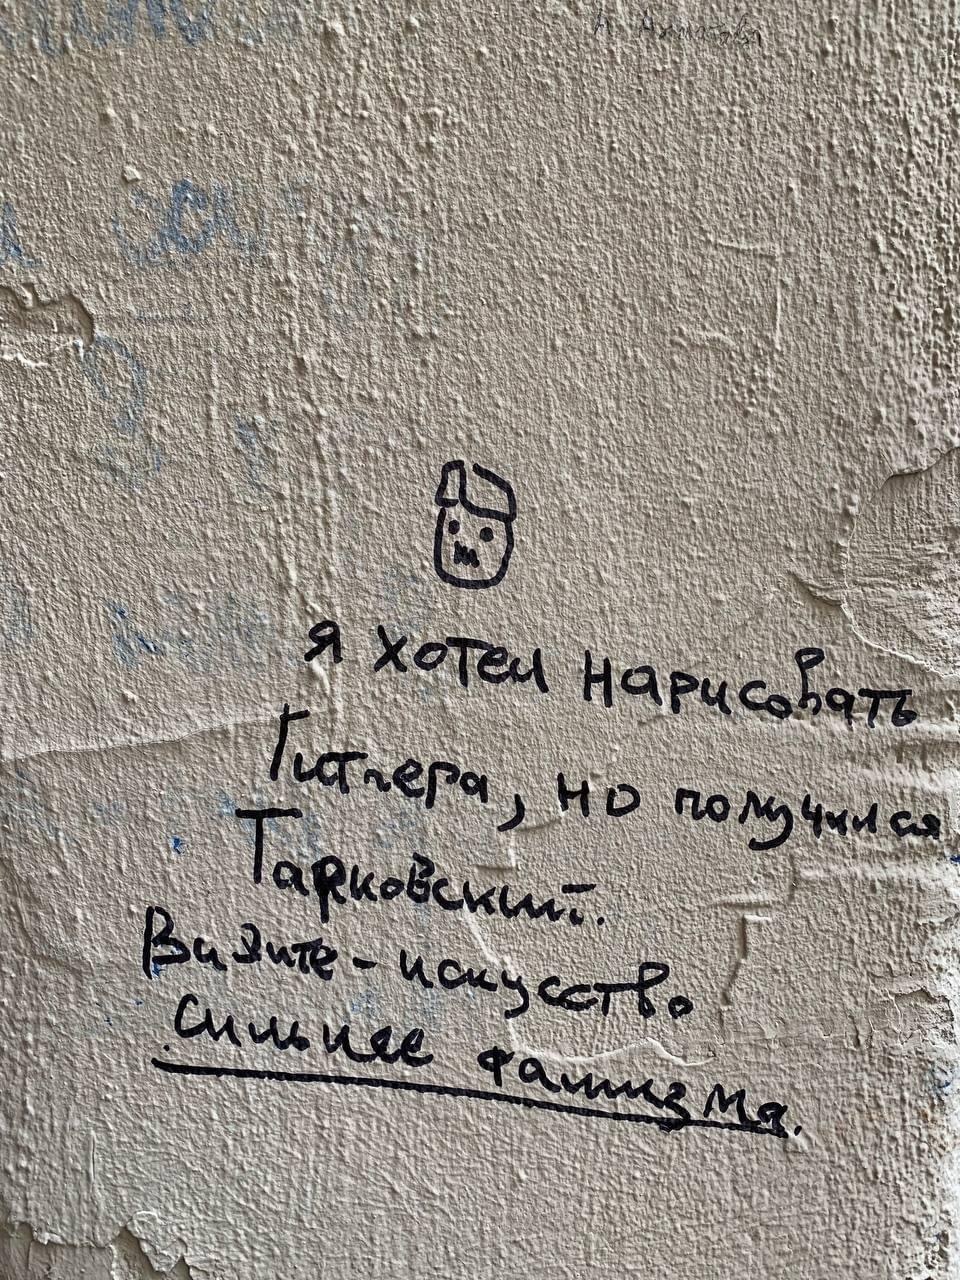 я хотел нарисовать
Гитлера, но получился
Тарковский.
Видите - искусство
сильнее фашизма.